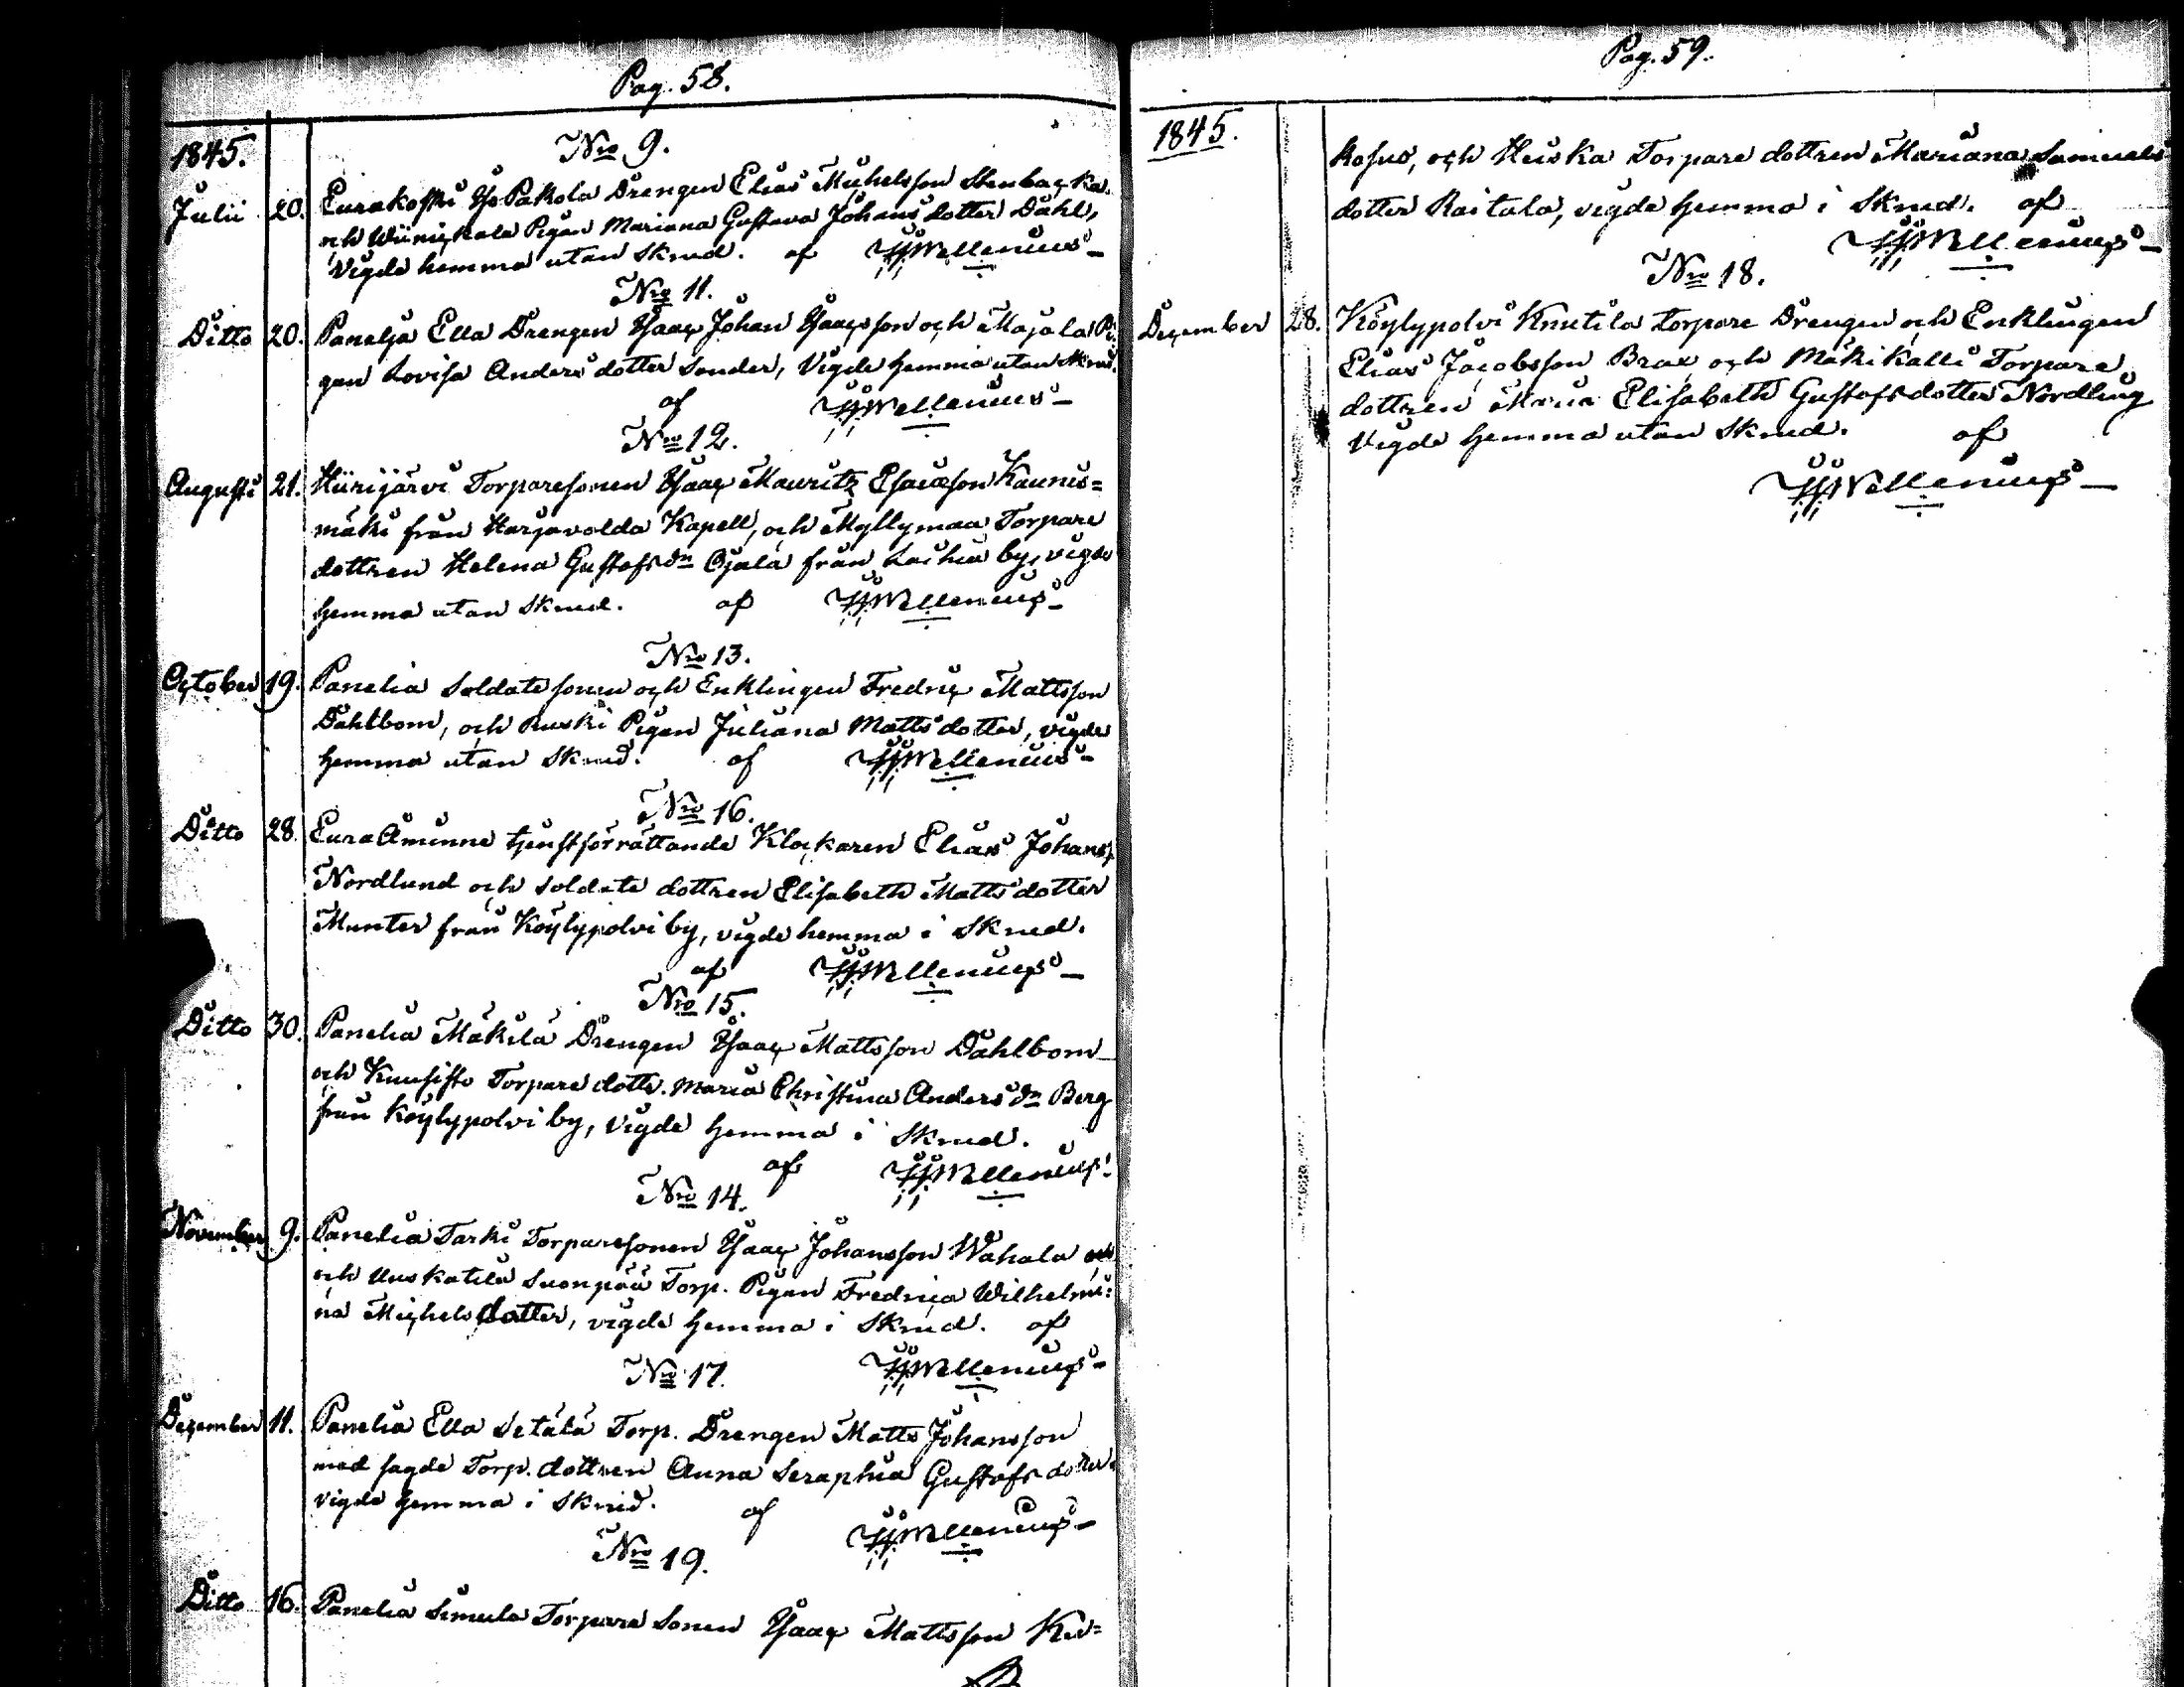 Pag. 58.
1845.
No 9.
Julii 20. Eurakoski Yso Pakola Drengen Elias Michelsson Stenbacka
och Wiinickala Pigan Mariana Gustava Johans dotter Dahl,
Vigde hemma utan Skrud. af Wellenius
No 11.
Ditto 20. Panelja Ella Drengen Ysaac Johan Ysaacsson och Majala Pi-
gan Lovisa Anders dotter Sender, Vigde hemma utan Skrud.
af Wellenius
No 12.
Augusti 21. Hiirijärvi Torparesonen Ysaac Mauritz Esaiasson Kaunis=
mäki från Harjavolda Kapell, och Myllymaa Torpare
dottren Helena Gustafs dr Ojala från Laihia by, vigde
hemma utan Skrud. af Wellenius
No 13.
October 19. Panelia Soldate sonen och Enklingen Fredric Mattsson
Dahlbom, och Ruski Pigan Juliana Matts dotter, vigde
hemma utan Skrud. af Wellenius
No 16.
Ditto 28. EuraÅminne tjenstförrättande Klockaren Elias Johans.
Nordlund och Soldate dottren Elisabeth Matts dotter
Munter från Köylypolvi by, vigde hemma i Skrud.
af Wellenius
No 15.
Ditto 30. Panelia Mäkilä Drengen Ysaac Mattsson Dahlbom
och Kuusisto Torpare dottr. Maria Christina Anders dr Berg
från Köylypolvi by, Vigde hemma i Skrud.
af Wellenius
No 14.
November 9. Panelia Tarki Torparesonen Ysaac Johansson Wähala och
och Uuskatila Suonpää Torp. Pigan Fredrica Wilhelmi:
na Michels dotter, vigde hemma i Skrud. af
Wellenius
No 17.
December 11. Panelia Ella Setälä Torp. Drengen Matts Johansson
med sagde Torp. dottren Anna Seraphia Gustafs dotter.
vigde hemma i Skrud. af Wellenius
No 19.
Ditto 16. Panelia Simula Torpare Sonen Ysaac Mattsson Ku=
Pag. 59.
1845.
kosus, och Heiska Torpare dottren Mariana Samuels
dotter Raitala, vigde hemma i Skrud. af
Wellenius
No 18.
December 28. Köylypolvi Knutila Torpare Drengen och Enklingen
Elias Jacobsson Brax och Mäkikalli Torpare
dottren Maria Elisabeth Gustafs dotter Nordling
Vigde hemma utan Skrud. af
Wellenius